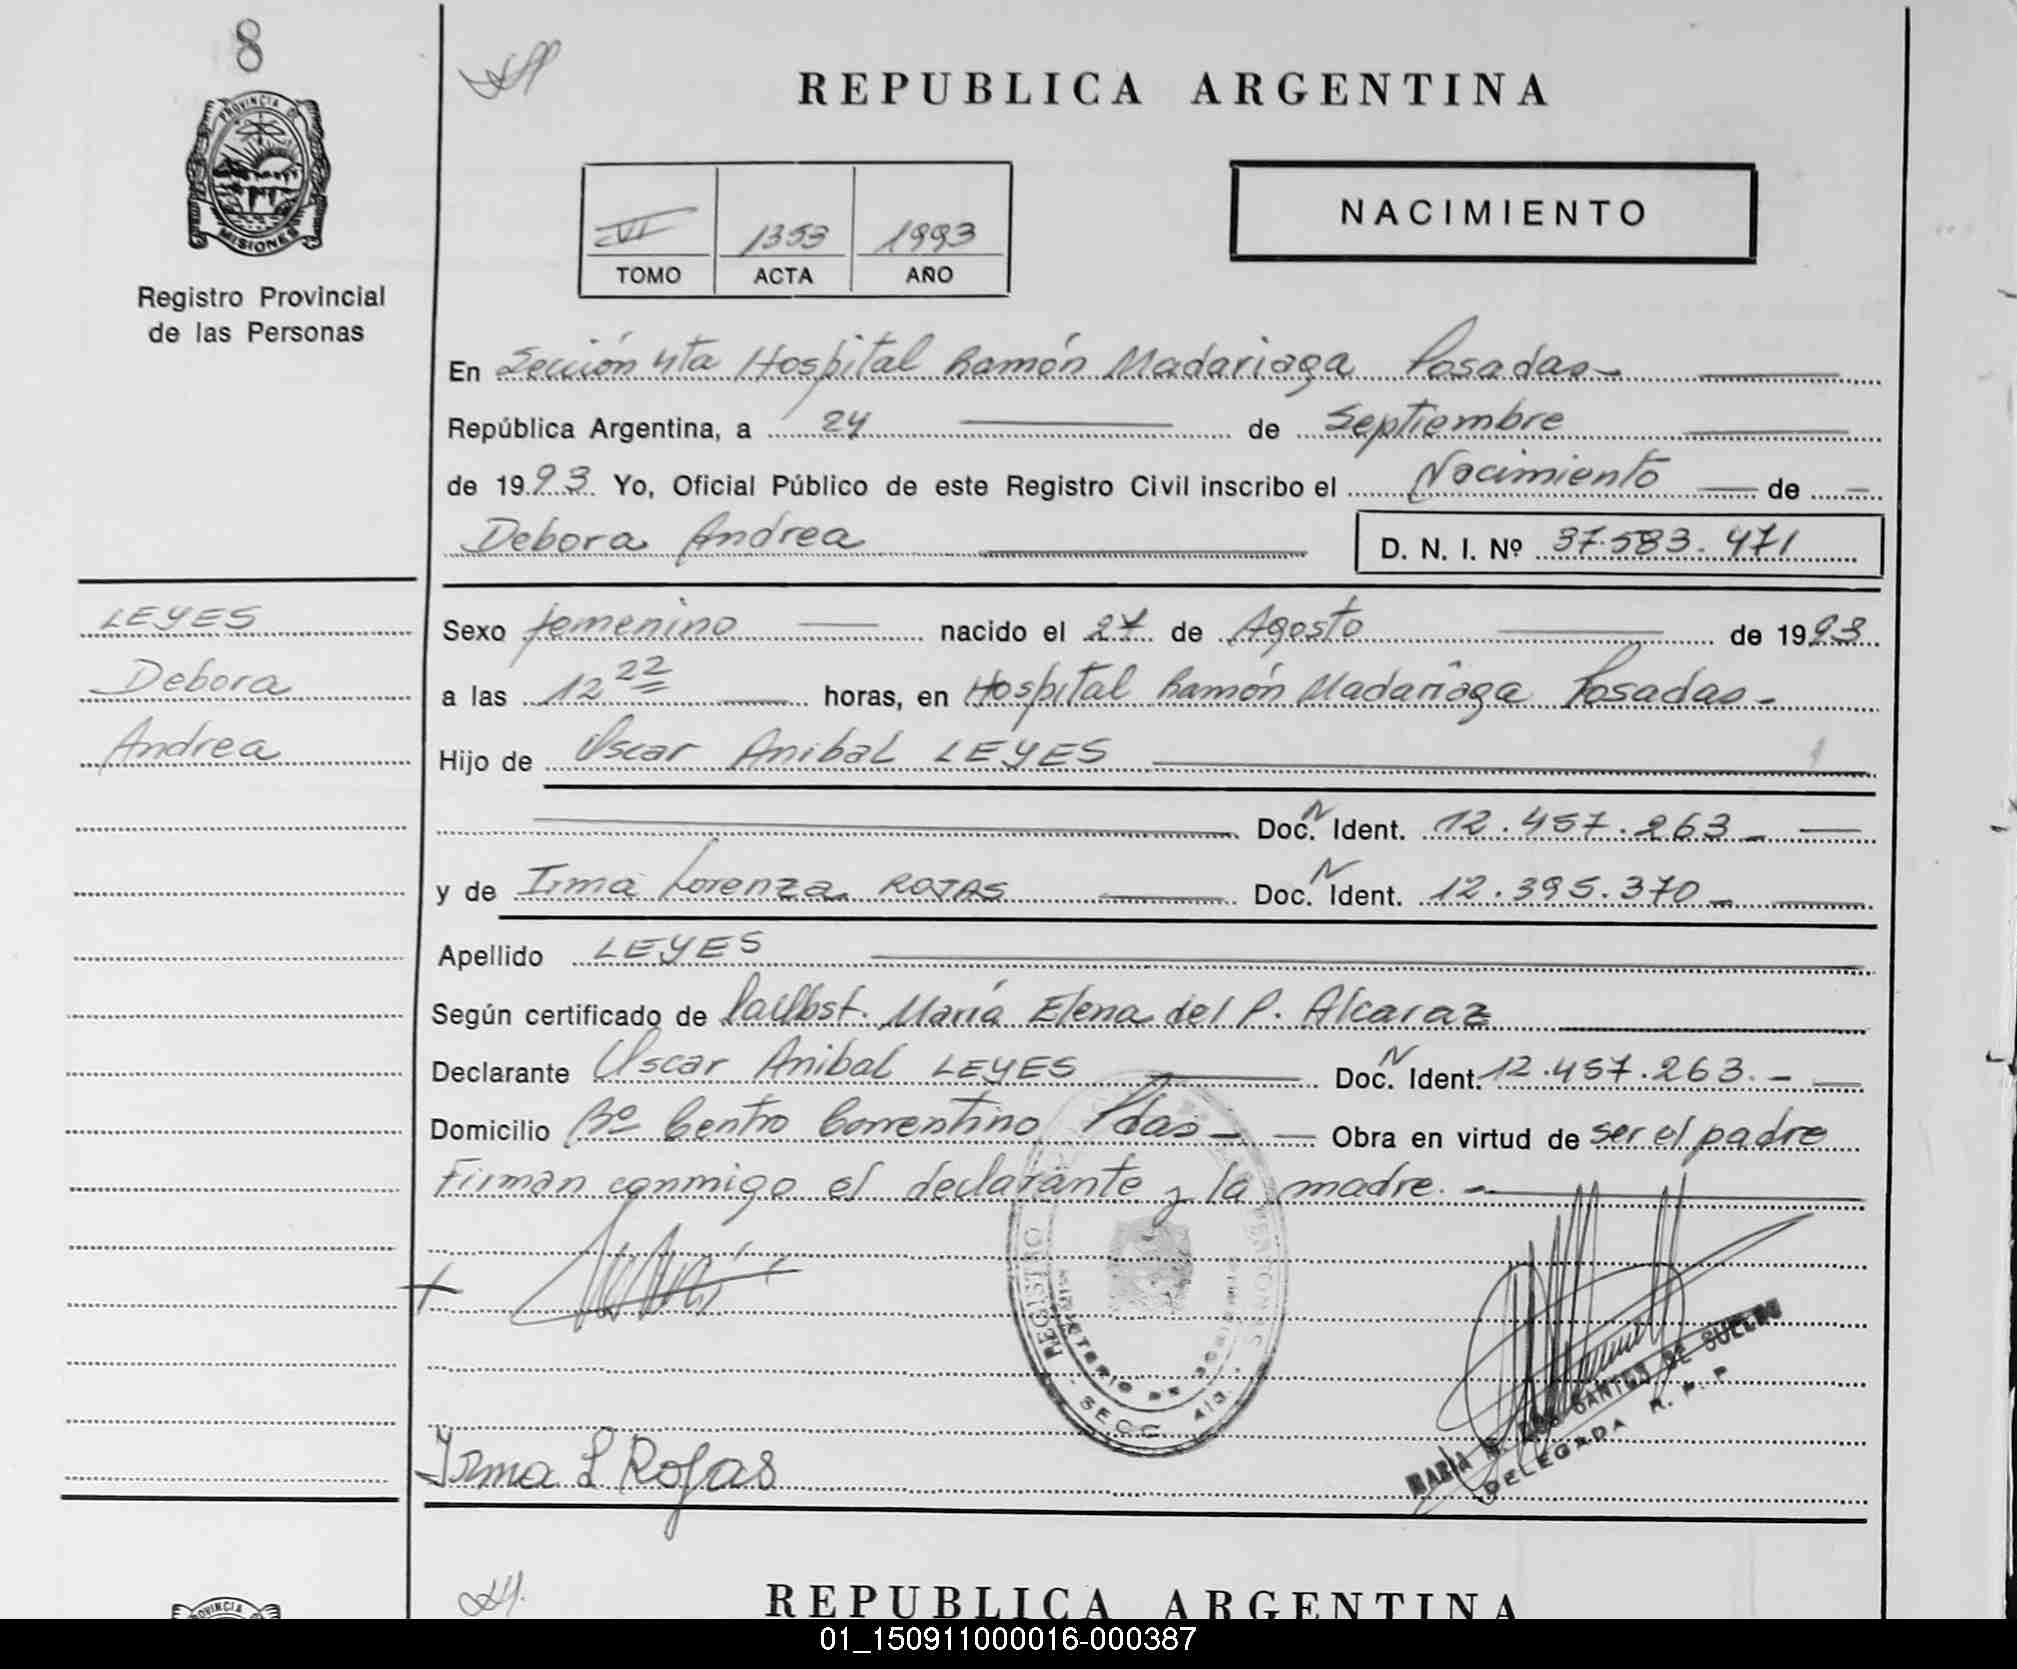 8
REPUBLICA ARGENTINA
PROVINCIA DE
MISIONES
Registro Provincial
de las Personas
NACIMIENTO
VI 1353 1993
TOMO ACTA AÑO
En Sección 4ta Hospital Ramón Madariaga Posadas
República Argentina, a 24 de Septiembre
de 1993. Yo, Oficial Público de este Registro Civil inscribo el Nacimiento de
Debora Andrea D. N. I. Nº 37.583.471
LEYES
Debora
Andrea
Sexo femenino nacido el 27 de Agosto de 1993
a las 12 22 horas, en Hospital Ramón Madariaga Posadas
Hijo de Oscar Anibal LEYES
Doc. N Ident. 12.457.263
y de Irma Lorenza ROJAS Doc. N Ident. 12.395.370
Apellido LEYES
Según certificado de María Elena del P. Alcaraz
Declarante Oscar Anibal LEYES Doc. N Ident. 12.457.263
Domicilio Bº Centro Correntino Pdas Obra en virtud de ser el padre
Firman conmigo el declarante y la madre.
REGISTRO PERSONAS
MINISTERIO DE GOBIERNO
SECC 4ta
Irma L Rojas
MARIA DOS SANTOS DE
DELEGADA R. P. P
PROVINCIA
REPUBLICA ARGENTINA
01_150911000016-000387